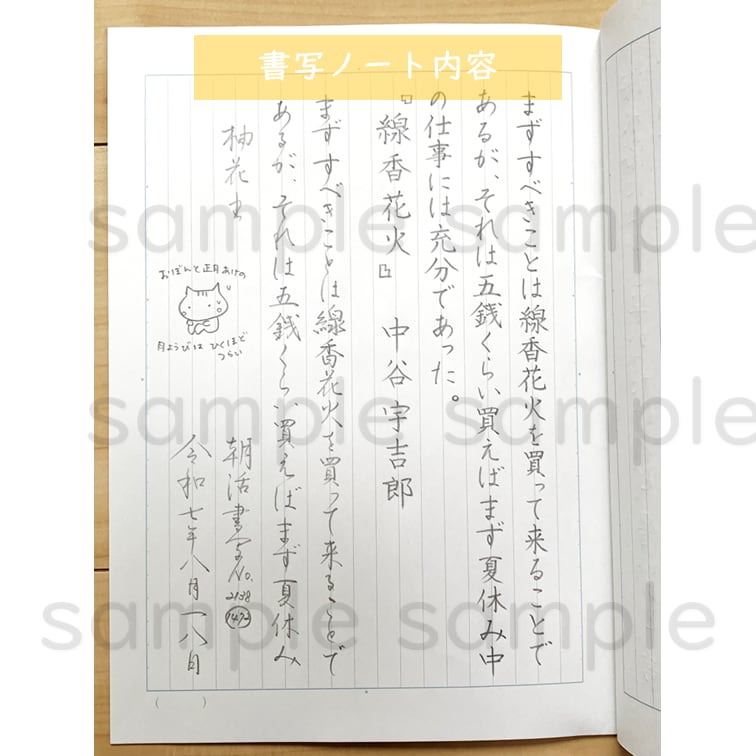 書写ノート内容
まずすべきことは線香花火を買って来ることで
あるが、それは五銭くらい買えばまず夏休み中
の仕事には充分であった。
『線香花火』 中谷宇吉郎
まずすべきことは線香花火を買って来ることで
あるが、それは五銭くらい買えばまず夏休み
柚花書
おぼんと正月あけの
月ようびは ひくほど
つらい
朝活書写No.
2138
1492
令和七年八月一八日
sample sample
sample sample
sample sample